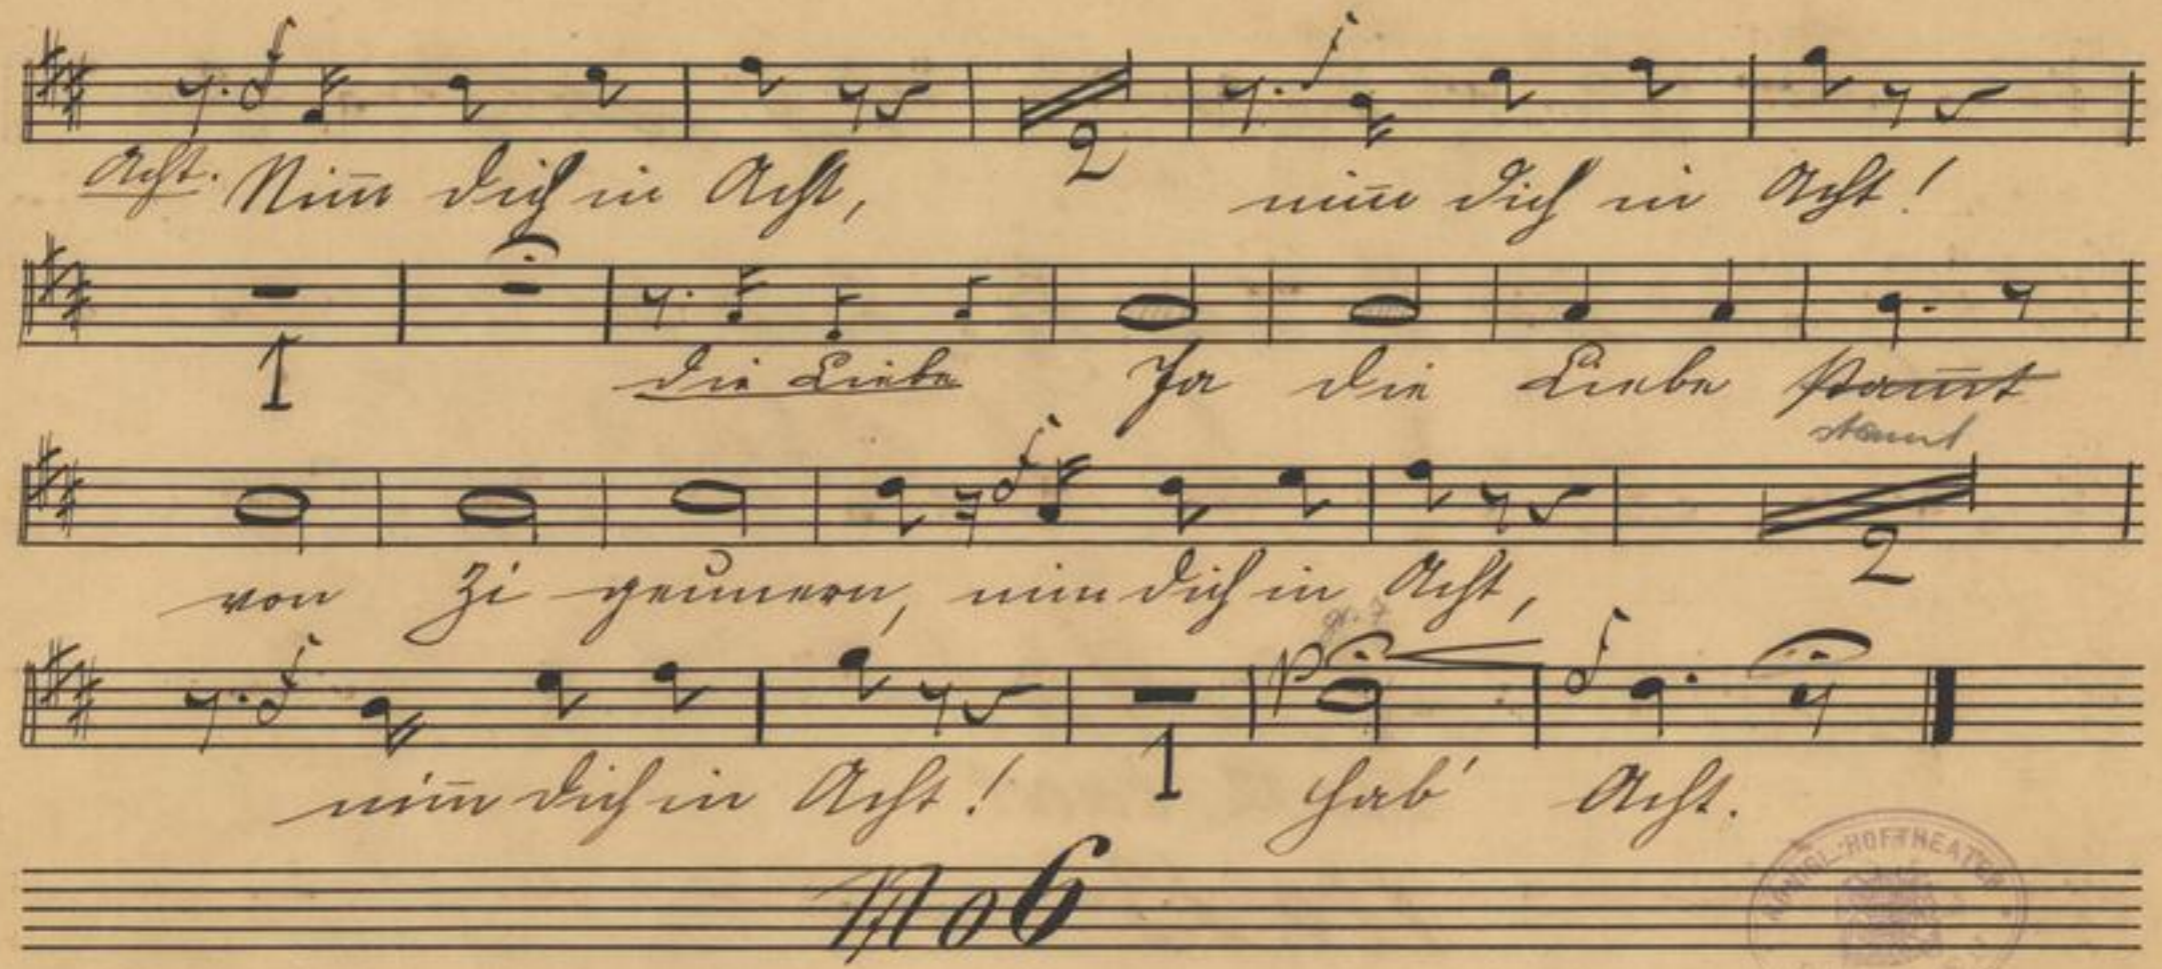 Acht. Nim̅ dich in Acht, 2 nim̅ dich in Acht!
1 die Liebe Ja die Liebe stam̅t
stammt
von Zi geunern, nim̅ dich in Acht, 2
p
nim̅ dich in Acht! 1 hab' Acht.
No 6
KÖNIGL. HOFTHEATER